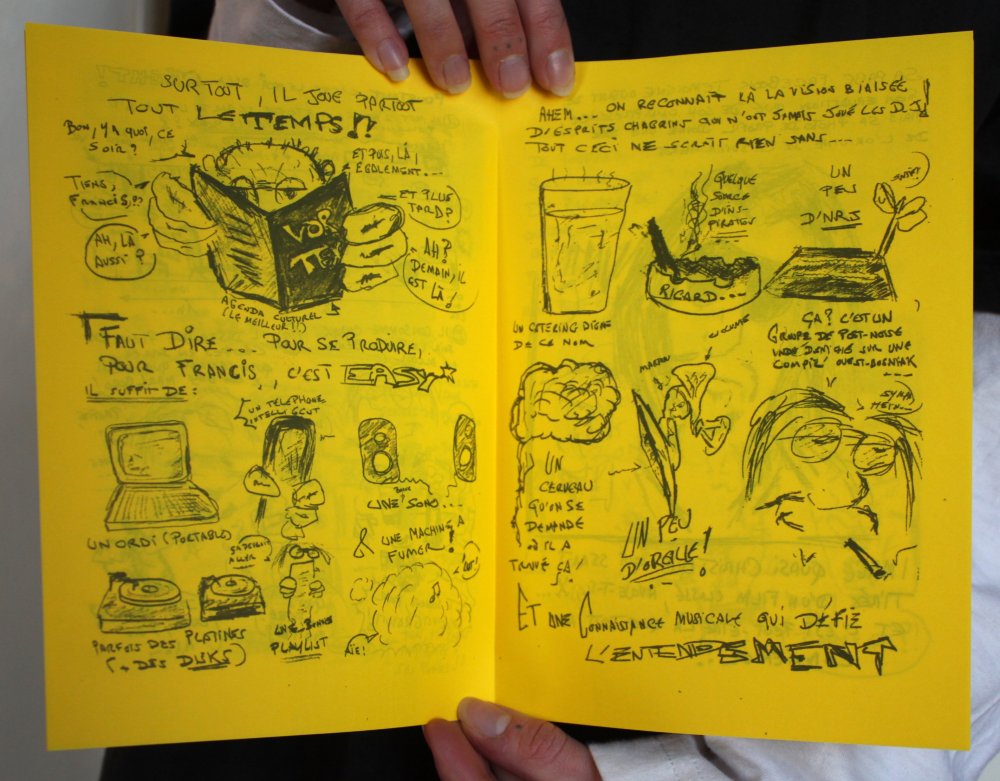 SURTOUT, IL JOUE PARTOUT
TOUT LE TEMPS!!
BON, Y A QUOI, CE
SOIR?
TIENS,
FRANCIS,!?
AH, LÀ
AUSSI?
ET PUIS, LÀ,
ÉGALEMENT...
ET PLUS
TARD?
AH?
DEMAIN, IL
EST LÀ!
VOR
TEX
AGENDA CULTUREL
(LE MEILLEUR!!)
FAUT DIRE... POUR SE PRODUIRE,
POUR FRANCIS, C'EST EASY
IL SUFFIT DE:
UN TÉLÉPHONE
INTELLIGENT
UN ORDI (PORTABLE)
UNE SONO...
& UNE MACHINE À
FUMER!
ÇA DEVRAIT
ALLER
PARFOIS DES PLATINES
(+ DES DISKS)
UNE BONNE
PLAYLIST
AÏE!
AHEM... ON RECONNAIT LÀ LA VISION BIAISÉE
D'ESPRITS CHAGRINS QUI N'ONT JAMAIS JOUÉ LES DJ!
TOUT CECI NE SERAIT RIEN SANS...
UN CATERING DIGNE
DE CE NOM
QUELQUE
SOURCE
D'INS-
PIRATION
RICARD...
UN
PEU
D'NRJ
ÇA? C'EST UN
GROUPE DE POST-NOISE
COMPIL' OUEST-BOSNIAK
UN
CERVEAU
QU'ON SE
DEMANDE
OÙ IL A
TROUVÉ ÇA!
UN PEU
D'OREILLE!
ET UNE CONNAISSANCE MUSICALE QUI DÉFIE
L'ENTENDEMENT